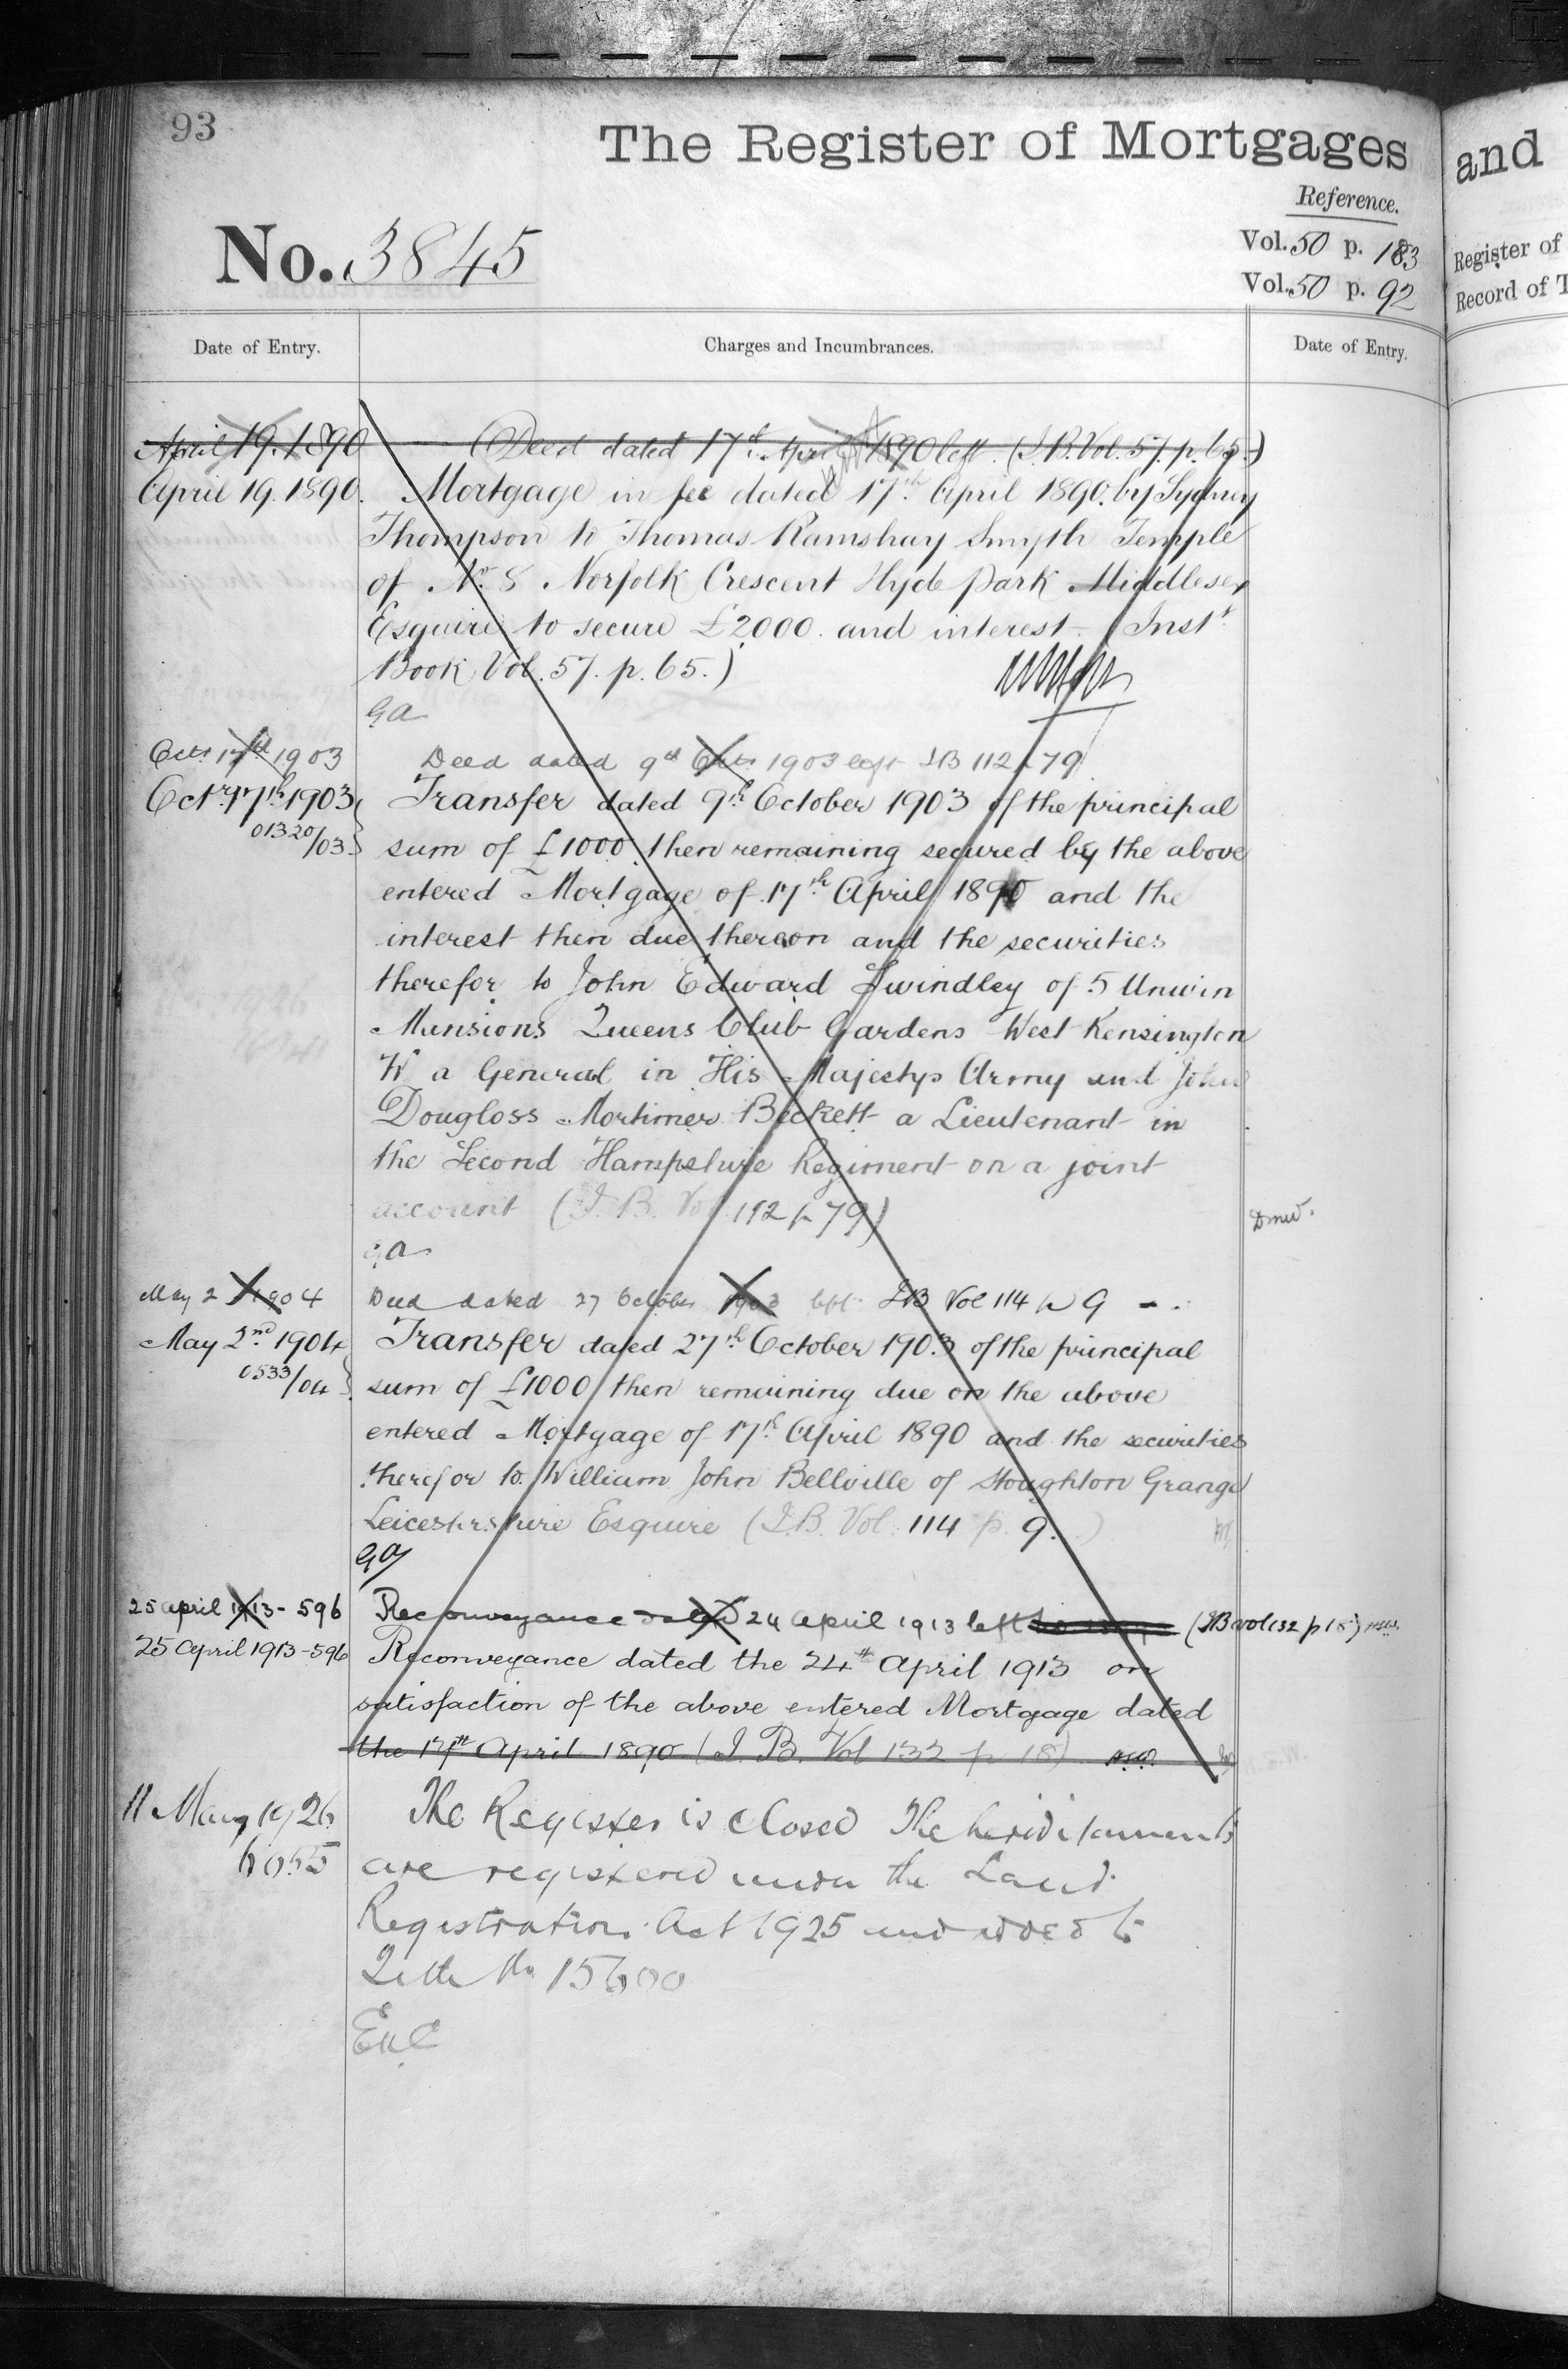 93
The Register of Mortgages
and
Reference.
No. 3845
Vol. 50 p. 183
Register of
Vol. 50 p. 92
Record of T
Date of Entry.
Charges and Incumbrances.
Date of Entry.
April 19. 1890 (Deed dated 17th April 1890 left. (I.B. Vol. 57. p. 65.)
April 19. 1890. Mortgage in fee dated 17th April 1890. by Sydney
Thompson to Thomas Ramshay Smyth Temple
of No. 8 Norfolk Crescent Hyde Park Middlesex
Esquire to secure £2000. and interest - (Inst.
Book Vol. 57. p. 65.)
GA
Oct 17th 1903 Deed dated 9th Oct 1903 left IB 112 p 79
Octr. 17th 1903 Transfer dated 9th October 1903 of the principal
01320/03 sum of £1000 then remaining secured by the above
entered Mortgage of 17th April 1890 and the
interest then due thereon and the securities
therefor to John Edward Swindley of 5 Unwin
Mansions Queens Club Gardens West Kensington
W a General in His Majestys Army and John
Dougloss Mortimer Beckett a Lieutenant in
the Second Hampshire Regiment on a joint
account (I.B. Vol 112 p 79)
GA
May 2 1904 Deed dated 27 October 1903 left IB Vol 114 p 9
May 2nd 1904 Transfer dated 27th October 1903 of the principal
0533/04 sum of £1000 then remaining due on the above
entered Mortgage of 17th April 1890 and the securities
therefor to William John Bellville of Stoughton Grange
Leicestershire Esquire (I.B. Vol. 114 p. 9.)
GA
25 April 1913 - 596 Reconveyance dated 24 April 1913 left (IB vol 132 p 18)
25 April 1913 - 596 Reconveyance dated the 24th April 1913 on
satisfaction of the above entered Mortgage dated
the 17th April 1890 (I.B. Vol 132 p 18)
11 May 1926 The Register is closed The hereditaments
6055 are registered under the Land
Registration Act 1925 and added to
Title No 15600